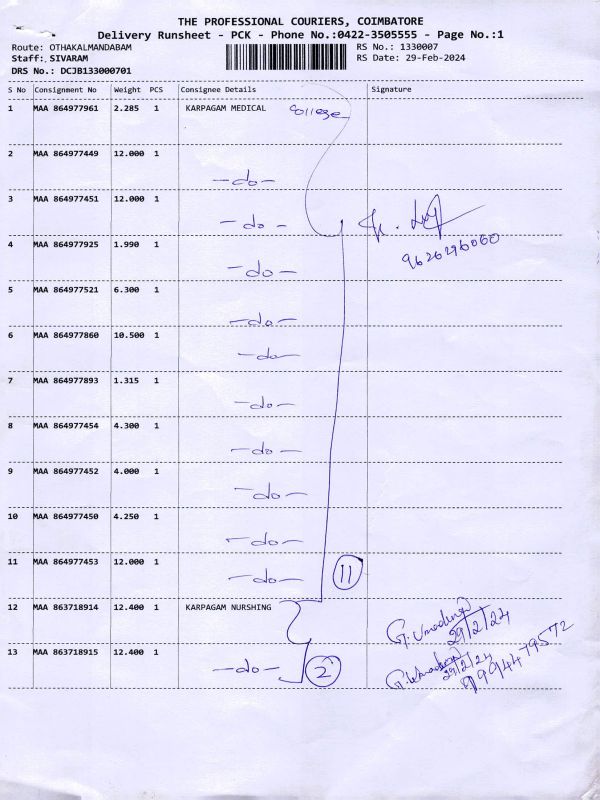 THE PROFESSIONAL COURIERS, COIMBATORE
Delivery Runsheet - PCK - Phone No.:0422-3505555 - Page No.:1
Route: OTHAKALMANDABAM RS No.: 1330007
Staff: SIVARAM RS Date: 29-Feb-2024
DRS No.: DCJB133000701
S No Consignment No Weight PCS Consignee Details Signature
1 MAA 864977961 2.285 1 KARPAGAM MEDICAL College
2 MAA 864977449 12.000 1
-do-
3 MAA 864977451 12.000 1
-do-
4 MAA 864977925 1.990 1 9626296060
-do-
5 MAA 864977521 6.300 1
-do-
6 MAA 864977860 10.500 1
-do-
7 MAA 864977893 1.315 1
-do-
8 MAA 864977454 4.300 1
-do-
9 MAA 864977452 4.000 1
-do-
10 MAA 864977450 4.250 1
-do-
11 MAA 864977453 12.000 1
-do- 11
12 MAA 863718914 12.400 1 KARPAGAM NURSHING
29/2/24
13 MAA 863718915 12.400 1
-do- 2 29/2/24